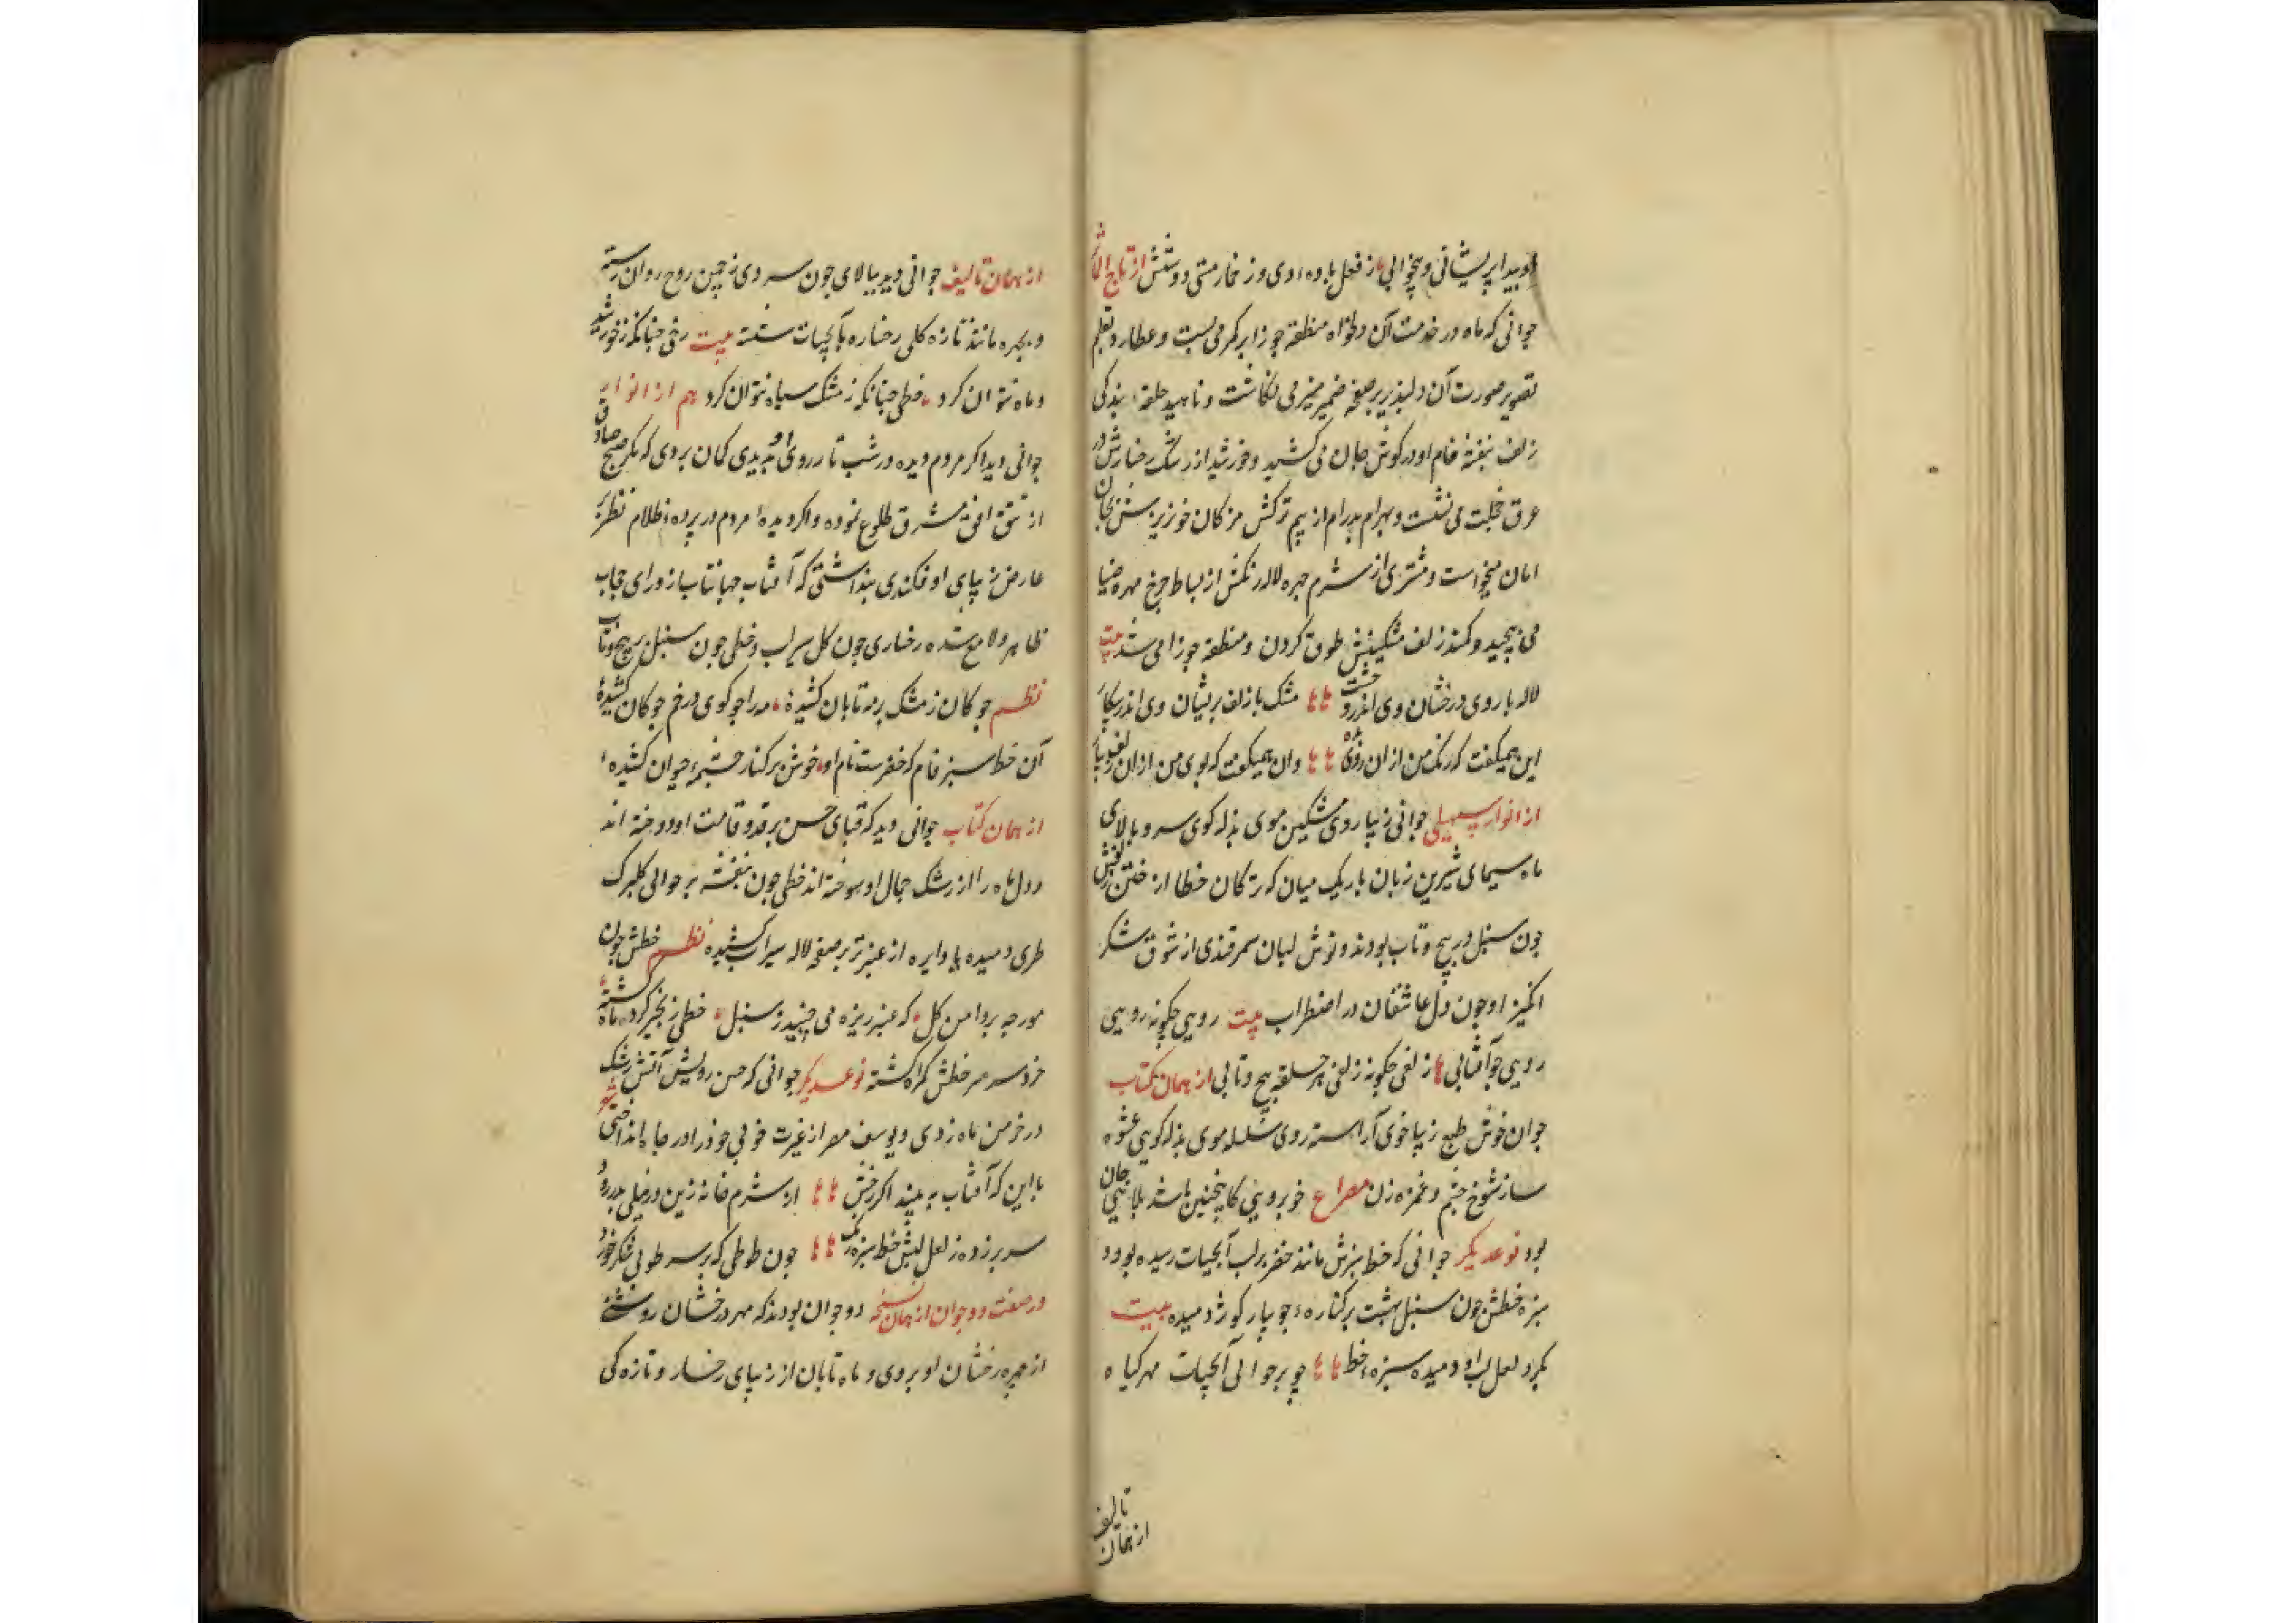 او پیدا پریشانی و بیخوابی از فعل باده وی و ز خمار مستی دوشش از تاج المآثر
جوانی که ماه در خدمت آن دلخواه منطقه جوزا بر کمر می بست و عطارد بقلم
تصویر صورت آن دلپذیر بر صفحه ضمیر منیر می نگاشت و ناهید حلقه بندگی
زلف بنفشه فام او در کوش جان می کشید و خورشید از رشک رخسارش در
عرق خجلت می نشست و بهرام بدرام از بیم ترکش مژکان خونریزش بجان
امان میخواست و مشتری از شرم چهره لاله رنگش از بساط چرخ مهره ضیا
می پیچید و کمند زلف مشکینش طوق کردن و منطقه جوزا می شد بیت
لاله با روی درخشان وی اندر خشت مشک با زلف پریشان وی اندر پیکار
این همیکفت که رنک من از ان روی وان همیکفت که بوی من از ان زلف بیار
از انوار سهیلی جوانی زیبا روی مشکین موی بذله کوی سرو بالای
ماه سیمای شیرین زبان باریک میان که ترکان خطا از ختن زلفش
جون سنبل در پیچ و تاب بودند و نوش لبان سمرقندی از شوق شکر
انکیز او جون دل عاشقان در اضطراب بیت رویی جکونه رویی
رویی جو آفتابی زلفی جکونه زلفی هر حلقه پیچ و تابی از همان کتاب
جوان خوش طبع زیبا خوی آراسته روی سلسله موی بذله کویی عشوه
ساز شوخ چشم و غمزه زن مصراع خوبرویی کاینچنین باشد بلای جان
بود نوعدیکر جوانی که خط سبزش مانند خضر بر لب آبحیات رسیده بود و
سبزه خطش جون سنبل بهشت بر کناره جویبار کوثر دمیده بیت
بکرد لعل لب او دمیده سبزه خط چو بر حوالی آبحیات مهر کیاه
تالیف
از همان
از همان تالیف جوانی دید ببالای جون سروی ز چمن روح روان رسته
و بجهره مانند تازه کلی رخساره بآبحیات شسته بیت رخی جنانکه ز خورشید
و ماه نتوان کرد خطی جنانکه ز مشک سیاه نتوان کرد هم از انوار
جوانی دید اکر مردم دیده در شب تار روی او بدیدی کمان بردی که مکر صبح صادق
از شق افق مشرق طلوع نموده و اکر دیده مردم در پرده ظلام نظر بر
عارض زیبای او فکندی بنداشتی که آفتاب جهانتاب از ورای حجاب
ظاهر و لامع شده رخساری جون کل سیراب و خطی جون سنبل پر پیچ و تاب
نظم جوکان ز مشک بر مه تابان کشیده مه را جو کوی در خم جوکان کشیده
آن خط سبز فام که خضرست نام او خوش بر کنار چشمه حیوان کشیده
از همان کتاب جوانی دید که قبای حسن بر قد و قامت او دوخته اند
و دل ماه را از رشک جمال او سوخته اند خطی جون بنفشه بر حوالی کلبرک
طری دمیده یا دایره از عنبر تر بر صفحه لاله سیراب کشیده نظم خطش جون
مورجه بر دامن کل که عنبر ریزه می چیند ز سنبل خطی زنجیر کرد ماه کشته
خرد سر بر خطش کمراه کشته نوعدیکر جوانی که حسن رویش آتش رشک
در خرمن ماه زدی و یوسف مصر از غیرت خوبی جو در اور جاه انداختی شعر
با این که آفتاب نه بیند اکر رخش از شرم خانه زین در نیلی بدر رود
سر بر زده ز لعل لبش خط سبز رنک جون طوطی که بر سر طوبی شکر خورد
در صفت دو جوان از همان نسخه دو جوان بودند که مهر درخشان روشنی
از چهره رخشان او بردی و ماه تابان از زیبای رخسار و تازه کی